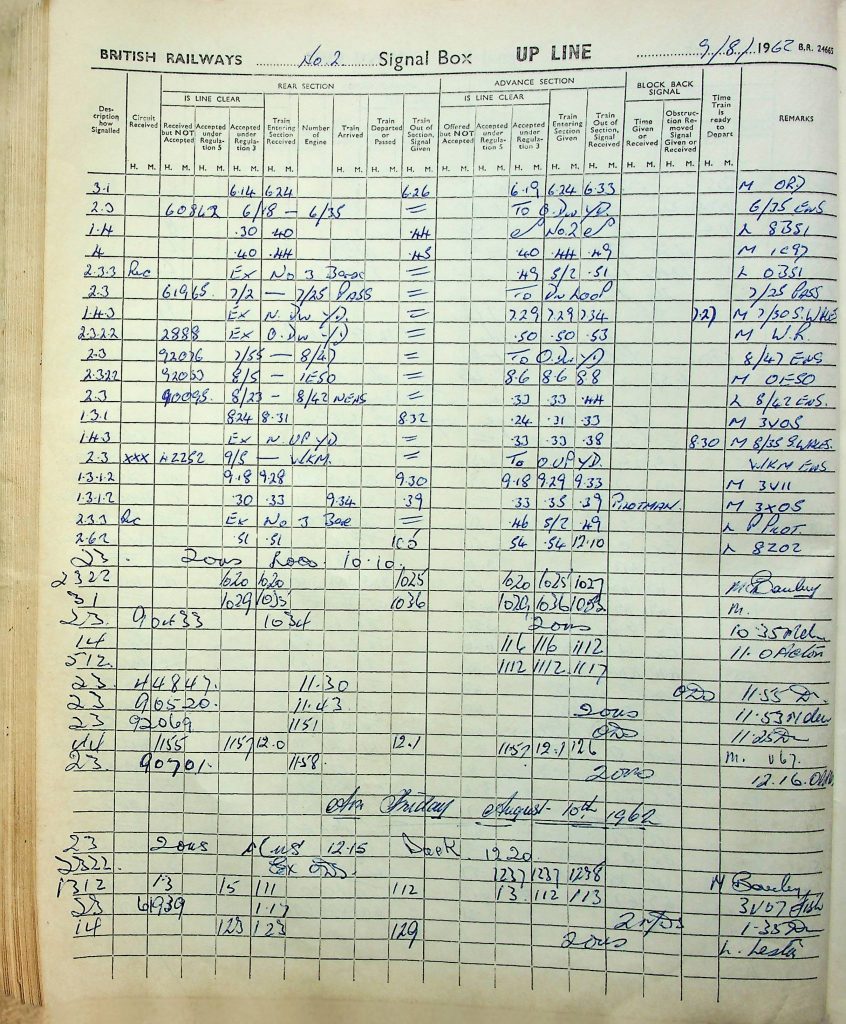 BRITISH RAILWAYS No. 2 Signal Box UP LINE 9/8/1962 B.R. 24663
REAR SECTION ADVANCE SECTION BLOCK BACK SIGNAL
IS LINE CLEAR IS LINE CLEAR
Description how Signalled Circuit Received Received but NOT Accepted Accepted under Regulation 5 Accepted under Regulation 3 Train Entering Section Received Number of Engine Train Arrived Train Departed or Passed Train Out of Section, Signal Given Offered but NOT Accepted Accepted under Regulation 5 Accepted under Regulation 3 Train Entering Section Given Train Out of Section, Signal Received Time Given or Received Obstruction Removed Signal Given or Received Time Train is ready to Depart REMARKS
H. M. H. M. H. M. H. M. H. M. H. M. H. M. H. M. H. M. H. M. H. M. H. M. H. M. H. M. H. M.
3.1 6.14 6.24 6.26 6.19 6.24 6.33 M ORD
2.3 60862 6/18 — 6/35 = To O.Dn YD. 6/35 ENS
1.4 .30 .40 .44 No.2 L 8351
4 .40 .44 .45 .40 .44 .49 M 1E97
2.3.3 Rec Ex No 3 Box = .49 5/2 .51 L 0351
2.3 61965. 7/2 — 7/25 PASS = To Dn Loop 7/25 PASS
1.4.3 Ex N. Dn YD. = 7.29 7.29 7.34 7.27 M 7/30
2.3.2.2 2888 Ex O.Dn YD = .50 .50 .53 M W.R.
2.3 92076 7/55 — 8/47 = To O.Dn YD 8/47 ENS
2.3.22 92033 8/5 — 1E50 = 8.6 8.6 8.8 M 01E50
2.3 90095. 8/23 — 8/42 NENS = .33 .33 .44 L 8/42 ENS.
1.3.1 8.24 8.31 8.32 .24 .31 .33 M 3V05
1.4.3 Ex N. UP YD = .33 .33 .38 8.30 M 8/35
2.3 xxx 42252 9/5 — W/KM. = To O.UP YD. W/KM ENS
1.3.1.2 9.18 9.28 9.30 9.18 9.29 9.33 M 3V11
1.3.1.2 .30 .33 9.34 .39 .33 .35 .39 PILOTMAN. M 3X05
2.3.3 Rec Ex No 3 Box = .46 5/2 .49 L P PILOT.
2.62 .51 .51 54 .54 12.10 L 8202
23. Loco. 10.10.
2322 1020 1020 1025 1020 1025 1027 M Banbury
31 1029 1035 1036 1029 1036 M.
23. 90433 1034 10.35
14 116 116 1112 11.0
512. 1112 1112 1117
23. 44847. 11.30 11.55 Dn
23 90520. 11.43 11.53
23 92069 1151 11.25 Dn
44 1155 1157 12.0 12.1 1157 12.1 126 M.
23. 90701. 1158. 12.16
Am Friday August 10th 1962
23 12.15 Dock 12.20
2322. Ex 1237 1237 1238
1312 1.3 15 111 112 1.3 112 113 M Banbury
23 61939 1.17 3V07 fish
14 123 123 129 1.35 Dn